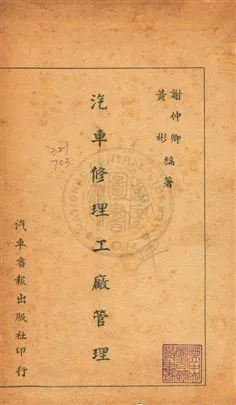 謝仲卿
黃彬 編著
汽車修理工廠管理
汽車書報出版社印行
321
703